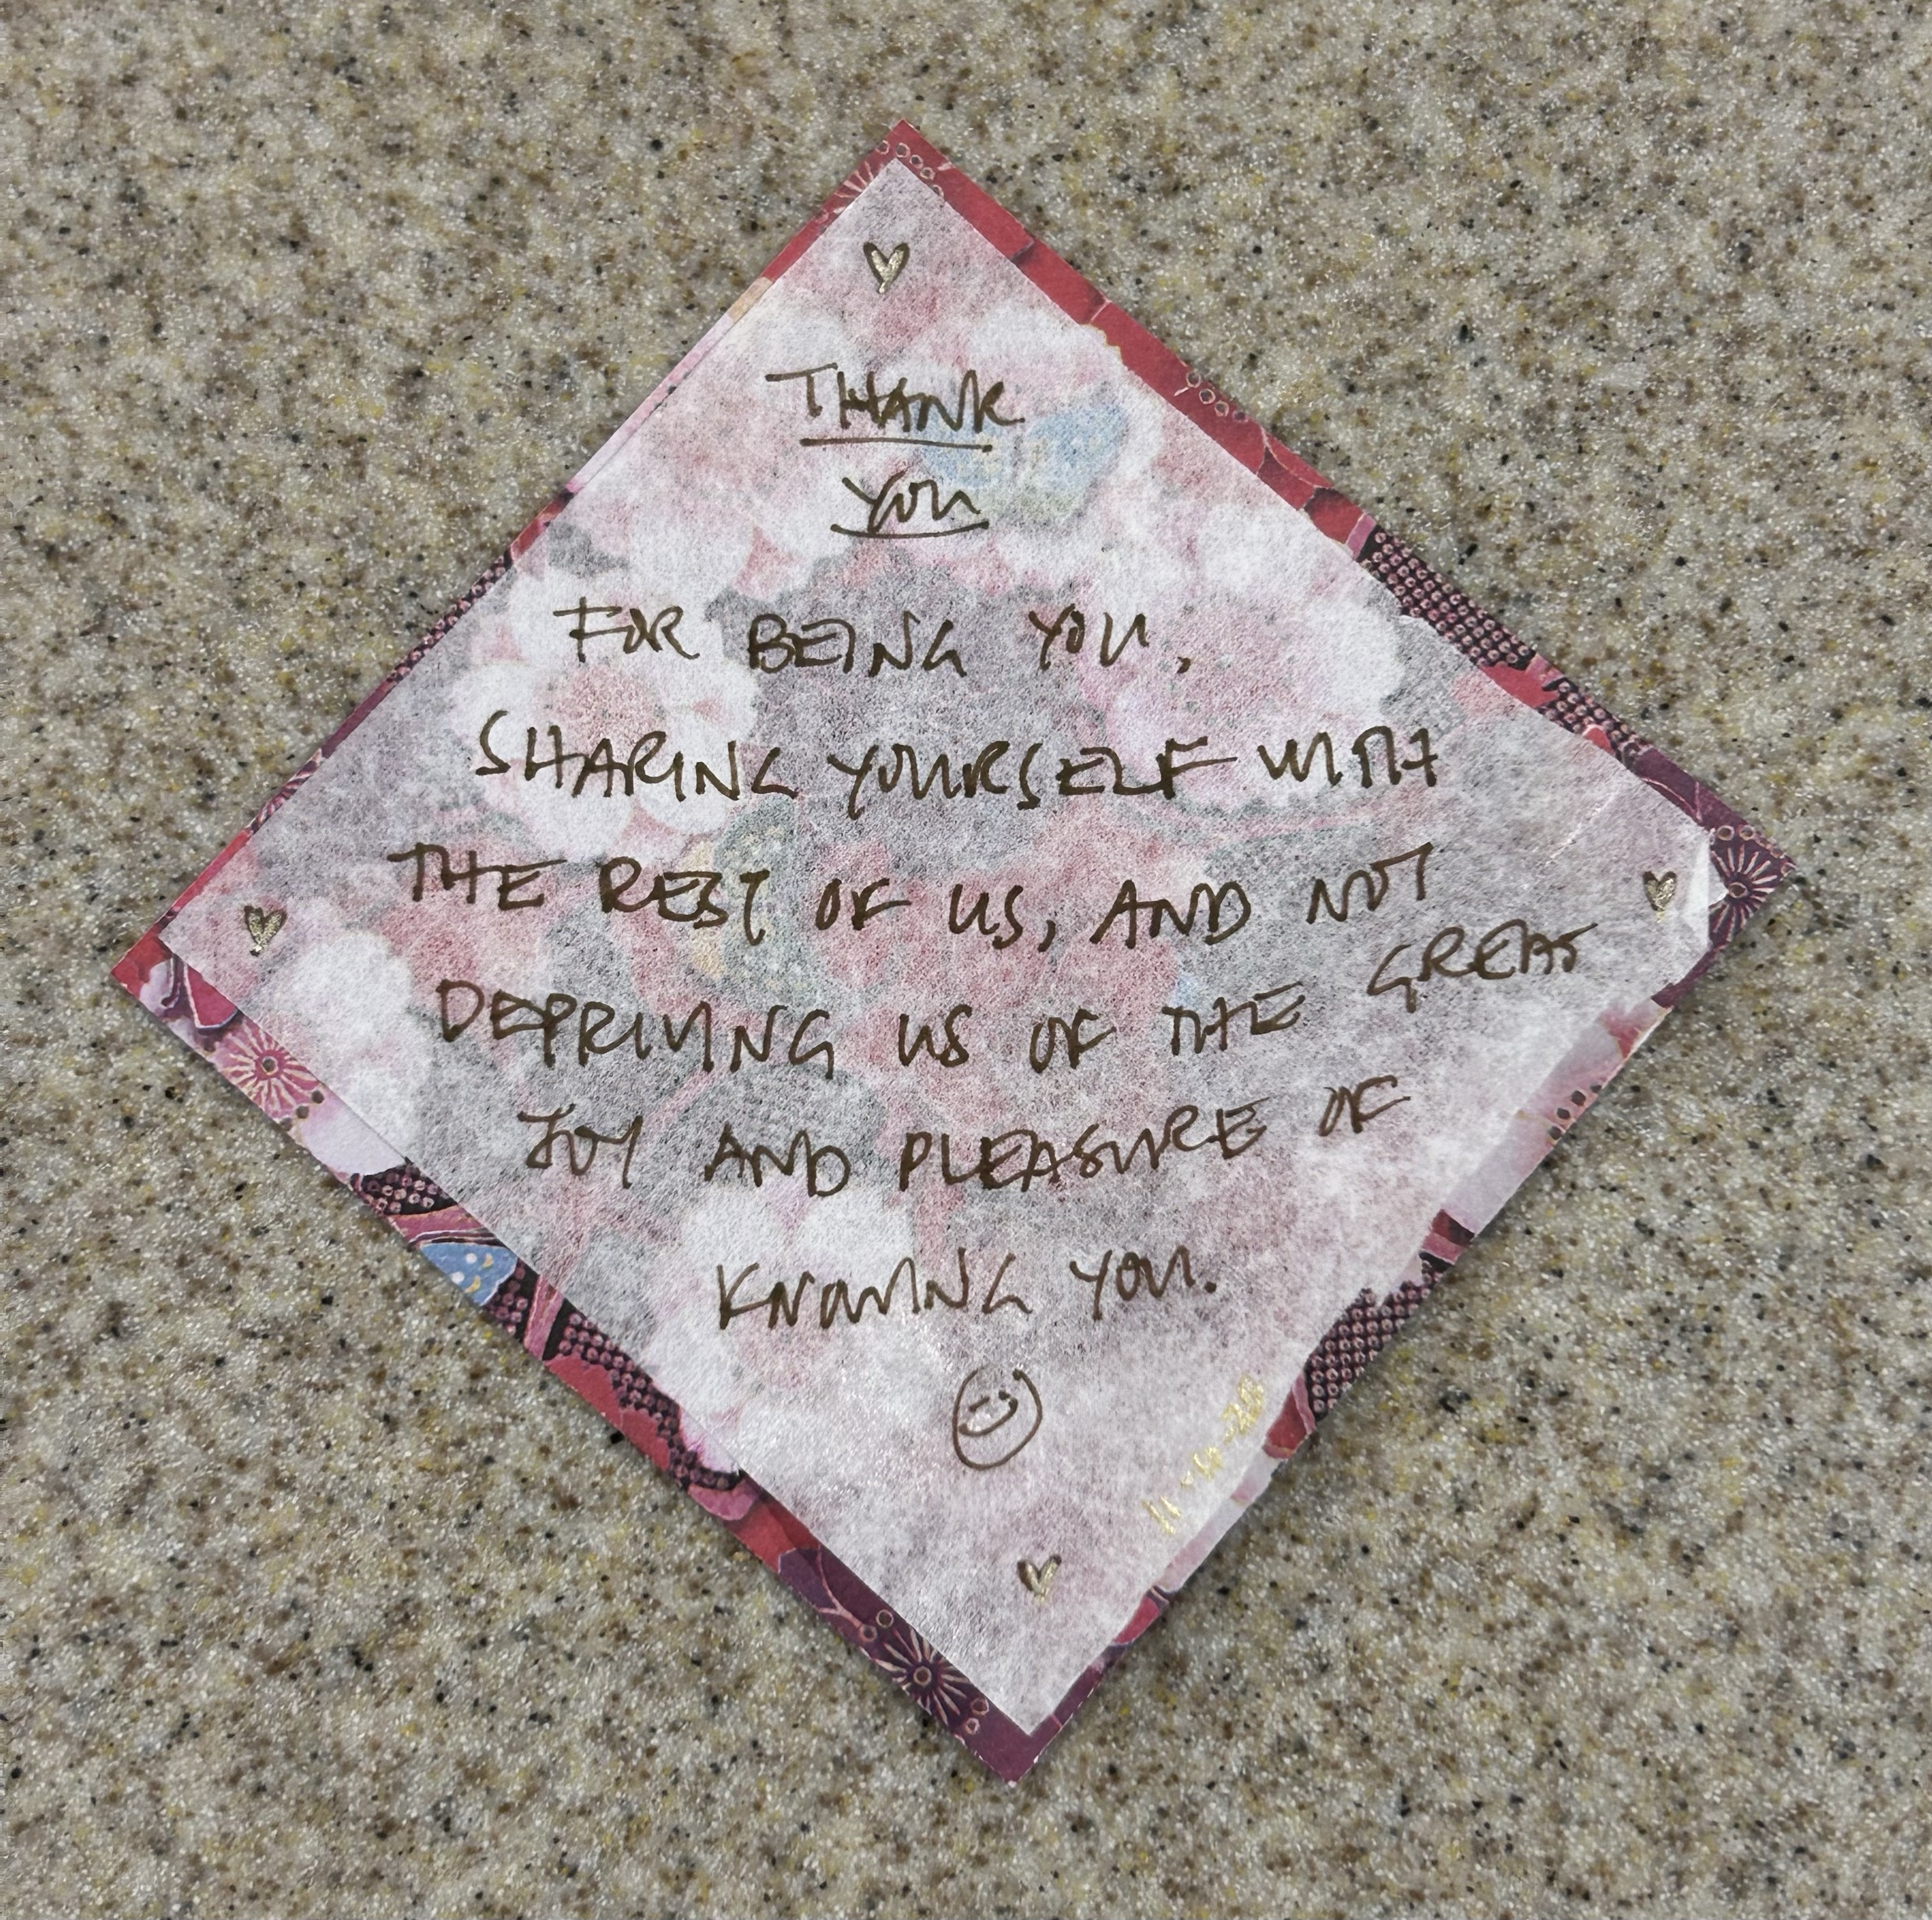 THANK
YOU
FOR BEING YOU,
SHARING YOURSELF WITH
THE REST OF US, AND NOT
DEPRIVING US OF THE GREAT
JOY AND PLEASURE OF
KNOWING YOU.